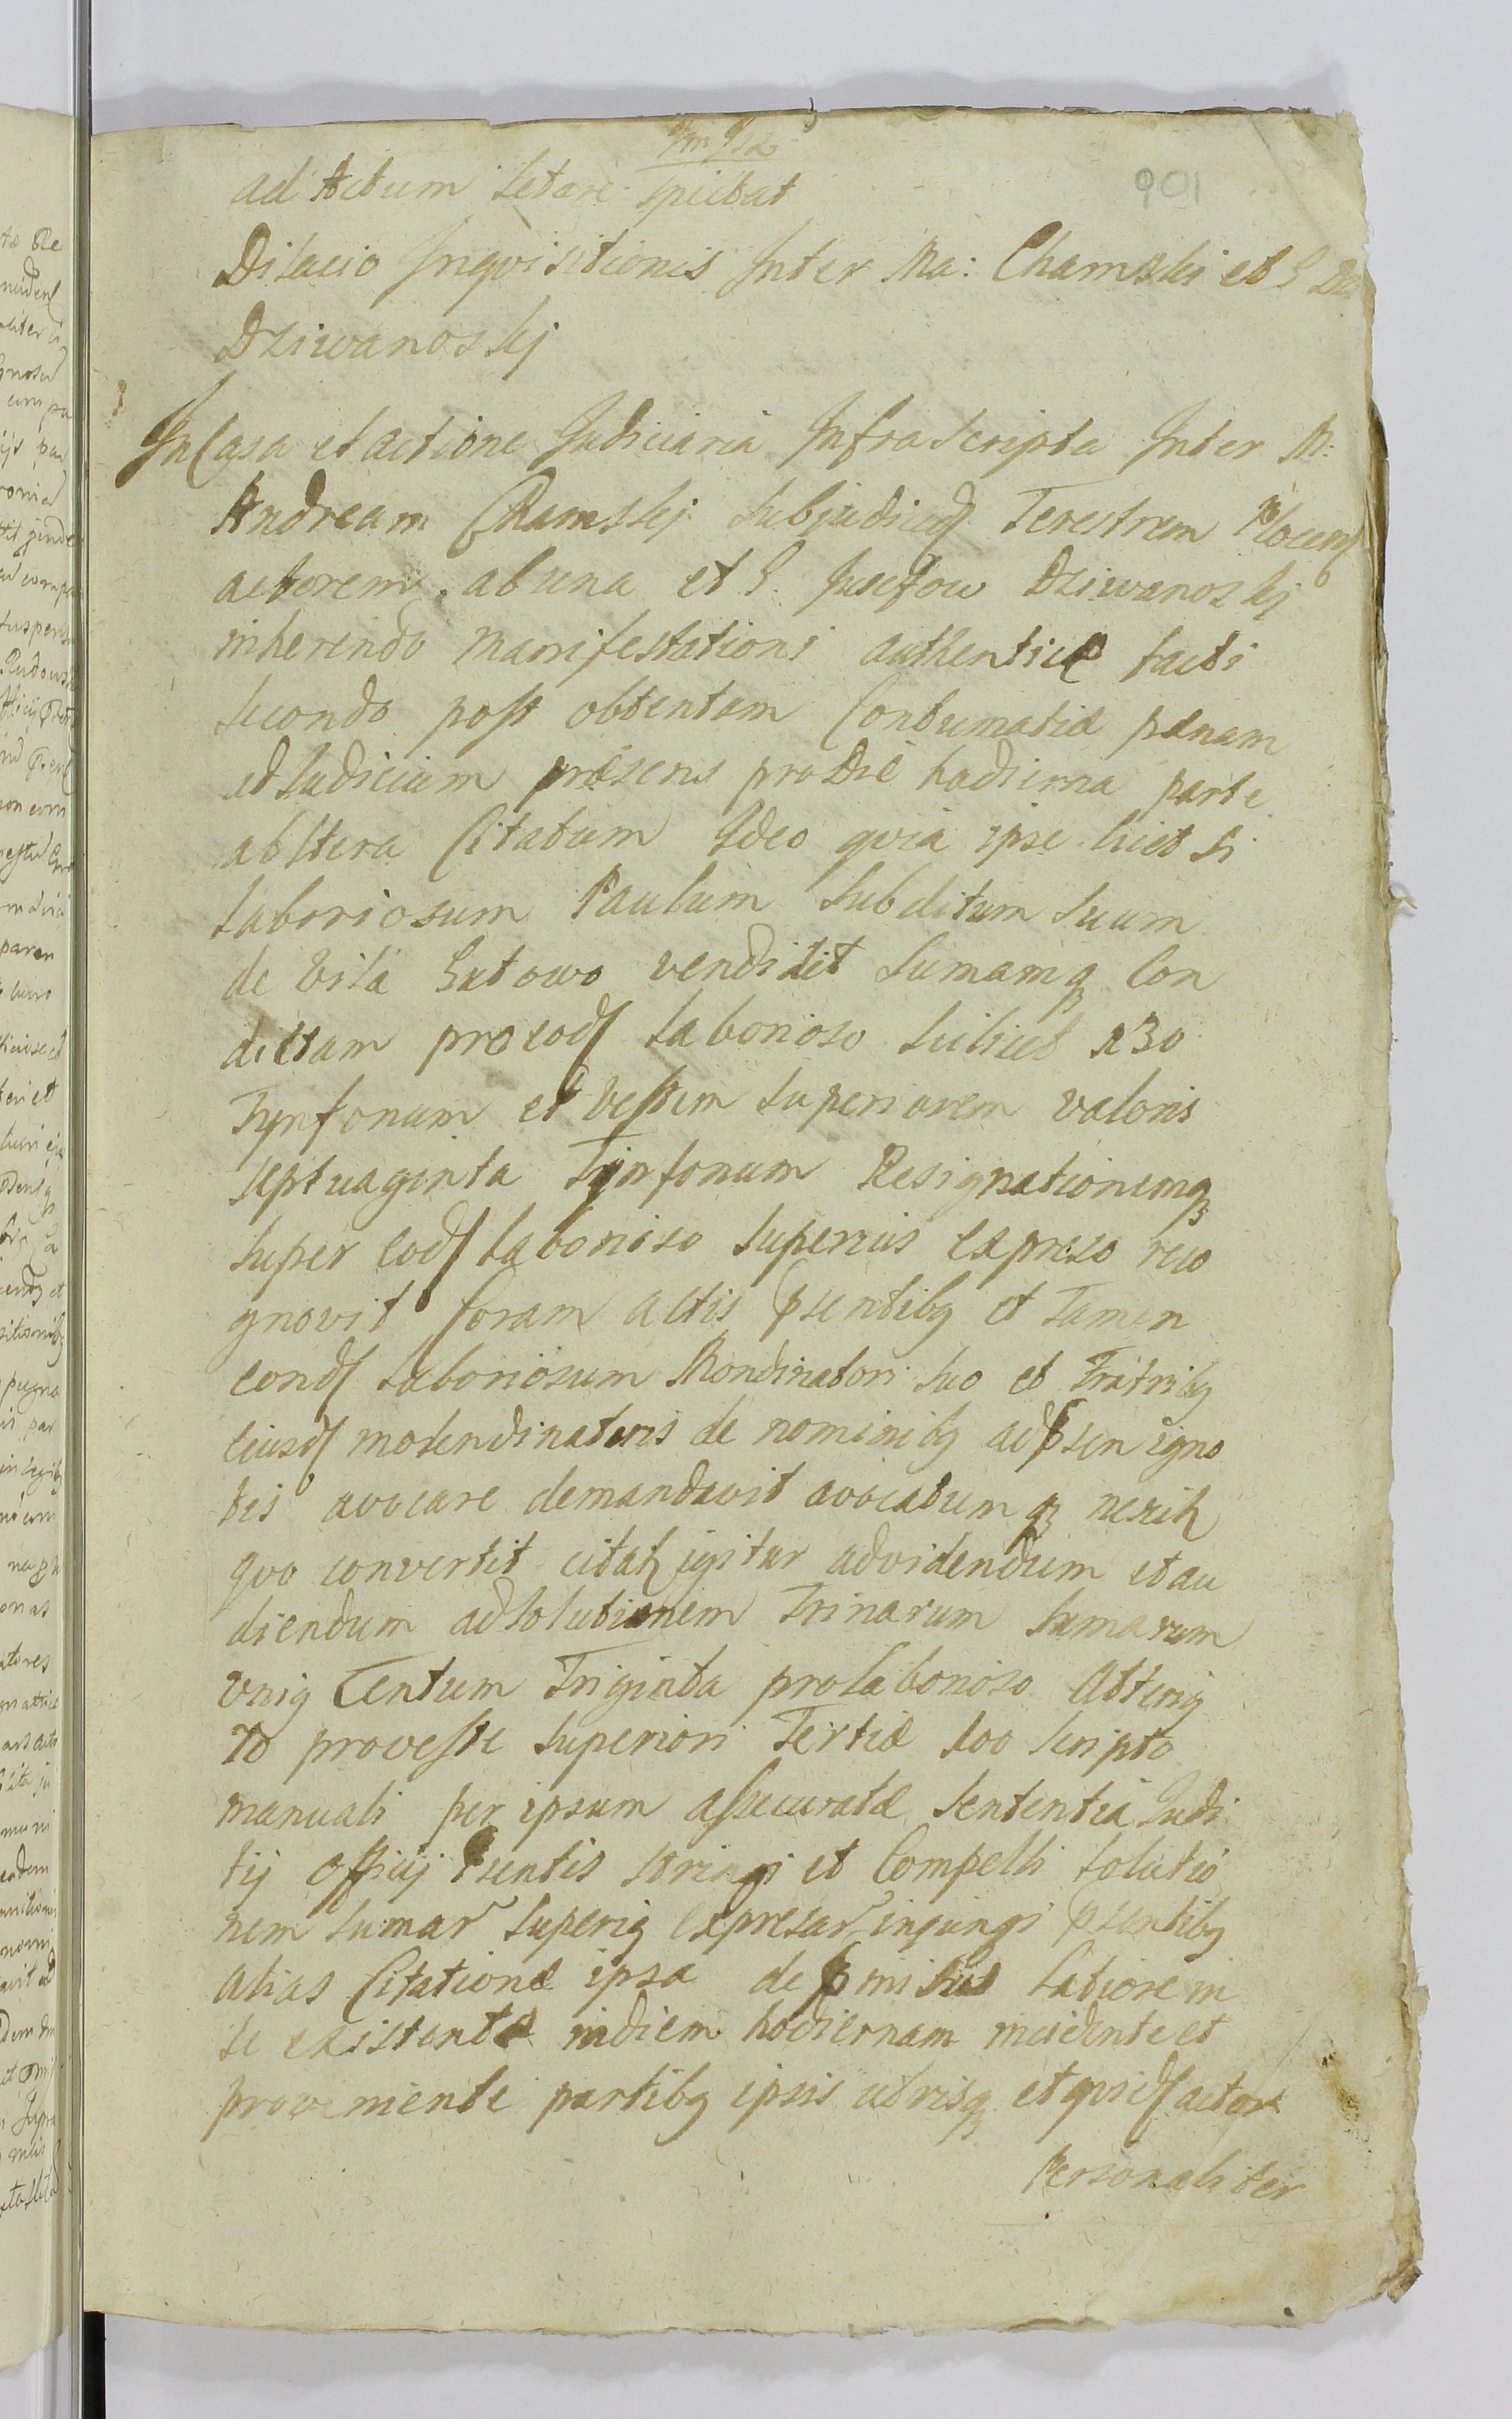 901
ad Actum Letare spectat
Dilacio Inqvisitionis Inter Ma: Chamski et G
Dziwanoskj
In Casa et actione Judiciaria Infrascripta Inter M:
Andream Chamskj Subjudicẽ Terestrem Plocens
actorem ab una et G. Jusefow Dziwanoskj
inherendo manifestationi authenticæ facti
secondo post obtentam Contumatiæ pænam
ad Judicium præsens pro Die hodierna parte
ab Altera Citatum Ideo qvia ipse licet si
Laboriosum Paulum Subditum suum
de Vila Gutowo vendidit Sumamq Con
dictam pro eod Laborioso scilicet 130
Tynfonum et Vestem superiorem valoris
septuaginta Tynfonum Resignationemq
super eod Laborioso superius expreso reco
gnovit Coram actis psentibq et Tamen
eond Laboriosum Mondinatori suo et Fratribq
eiusd molendinatoris de nominibq ad psen igno
tis avocare demandavit avocatumq nescit
qvo convertit citat igitur ad videndum et au
diendum ad Solutionem Trinarum Sumarum
vniq Centum Triginta pro Laborioso Alteriq
70 pro veste superiori Tertiæ 100 scripto
manuali per ipsum assecuratæ Sententia Judi
tij officij Psentis stringi et Compelli solutio
nem sumar superiq expresar injungi psentibq
alias Citatione ipsa de pmisis Latiore in
se existente in diem hodiernam incidente et
proveniente partibq ipsis utrisq et qvid actore
Personaliter